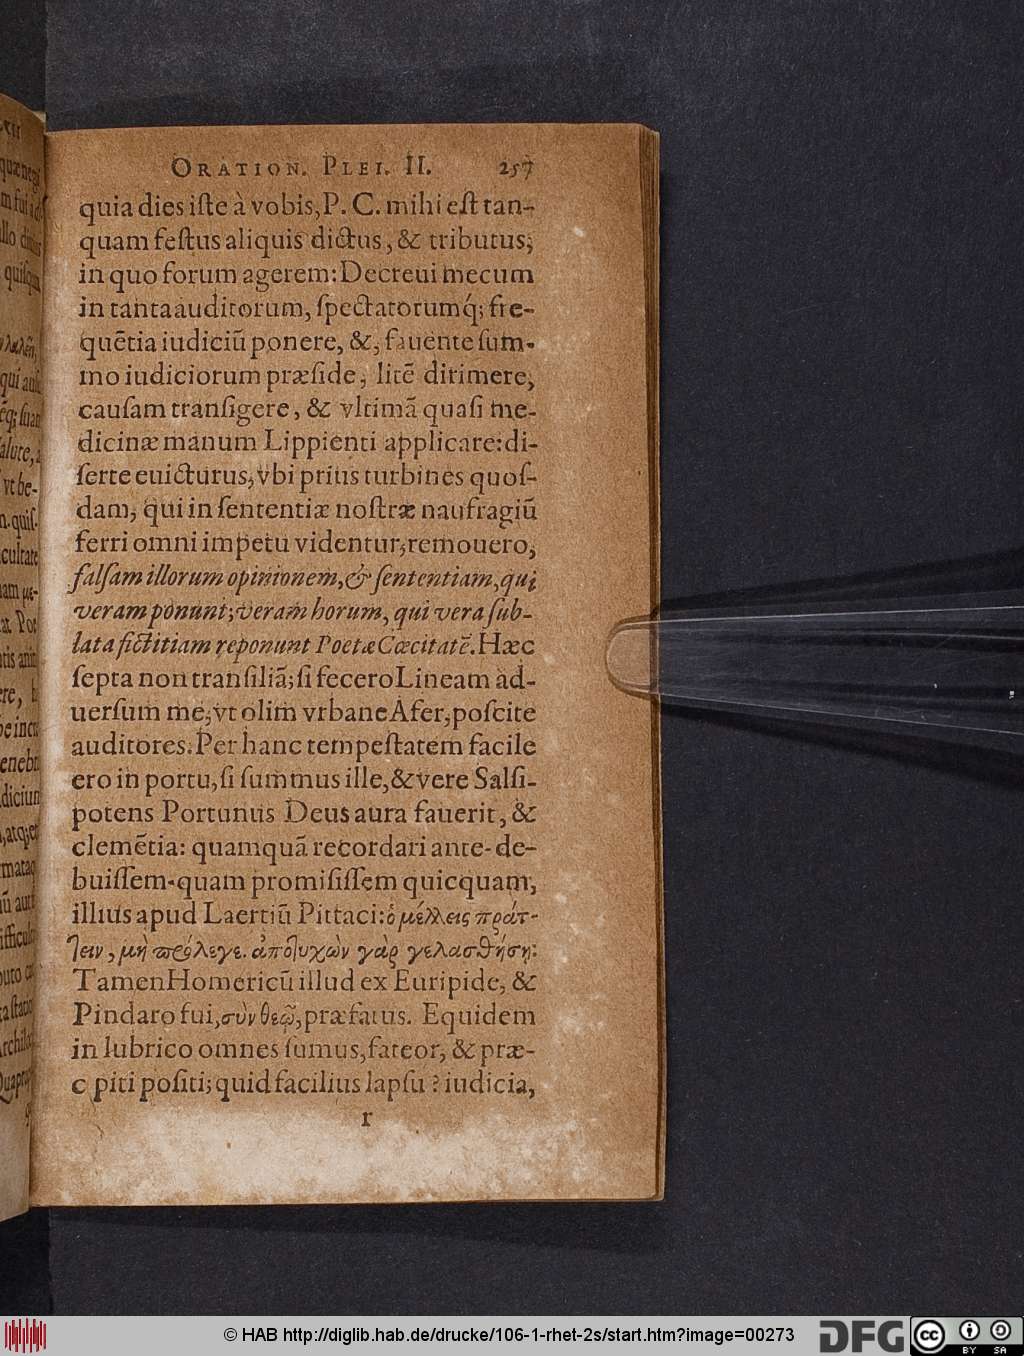 ORATION. PLEI. II. 257
quia dies iſte à vobis, P. C. mihi eſt tan-
quam feſtus aliquis dictus, & tributus;
in quo forum agerem: Decreui mecum
in tanta auditorum, ſpectatorumq́; fre-
quẽtia iudiciũ ponere, &, fauente ſum-
mo iudiciorum præſide, litẽ dirimere,
cauſam tranſigere, & vltimã quaſi me-
dicinæ manum Lippienti applicare: di-
ſerte euicturus, vbi prius turbines quoſ-
dam, qui in ſententiæ noſtræ naufragiũ
ferri omni impetu videntur, remouero,
falſam illorum opinionem, & ſententiam, qui
veram ponunt; veram horum, qui vera ſub-
lata fictitiam reponunt Poetæ Cæcitatẽ. Hæc
ſepta non tranſiliã; ſi fecero Lineam ad-
uerſum me, vt olim vrbane Afer, poſcite
auditores. Per hanc tempeſtatem facile
ero in portu, ſi ſummus ille, & vere Salſi-
potens Portunus Deus aura fauerit, &
clemẽtia: quamquã recordari ante-de-
buiſſem-quam promiſiſſem quicquam,
illius apud Laertiũ Pittaci: ὁ μέλλεις πράτ-
τειν, μὴ πρόλεγε. ἀποτυχὼν γὰρ γελασθήσῃ:
Tamen Homericũ illud ex Euripide, &
Pindaro fui, σὺν θεῷ, præfatus. Equidem
in lubrico omnes ſumus, fateor, & præ-
c piti poſiti; quid facilius lapſu? iudicia,
r
© HAB http://diglib.hab.de/drucke/106-1-rhet-2s/start.htm?image=00273
DFG
cc BY SA